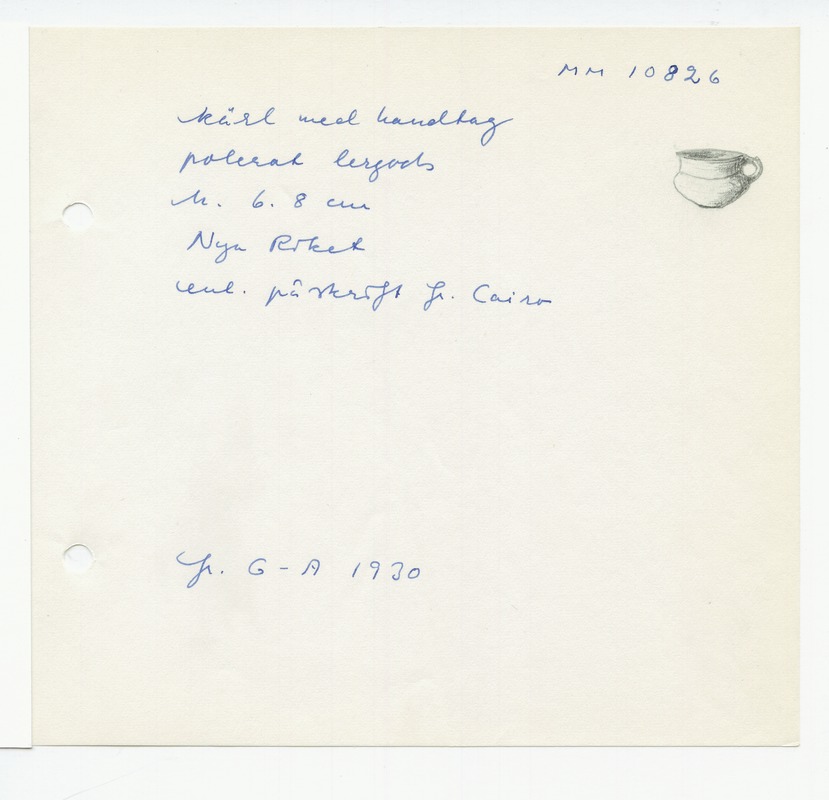 MM 10826
kärl med handtag
polerat lergods
h. 6.8 cm
Nya Riket
enl. påskrift fr. Cairo
fr. G-A 1930